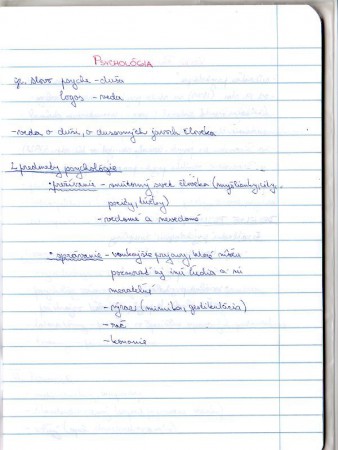 PSYCHOLÓGIA
gr. slovo psyche - duša
logos - veda
- veda o duši, o duševných javoch človeka
2 predmety psychológie
• prežívanie - vnútorný svet človeka (myšlienky, city,
pocity, túžby)
- vedomé a nevedomé
• správanie - vonkajšie prejavy, ktoré môžu
pozorovať aj iní ľudia a sú
merateľné
- výraz (mimika, gestikulácia)
- reč
- konanie